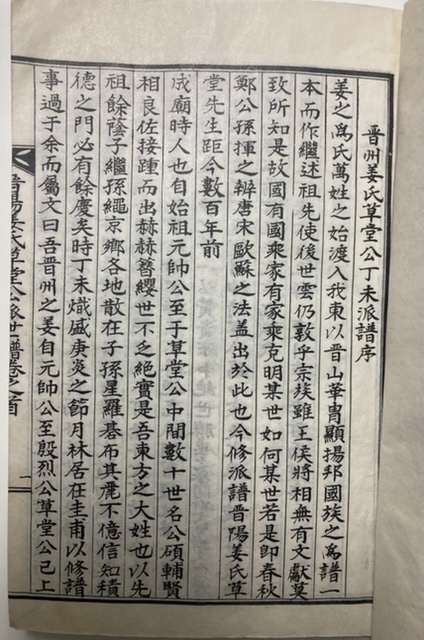 晋州姜氏草堂公丁未派譜序
姜之爲氏萬姓之始渡入我東以晋山華胄顯揚邦國族之爲譜一
本而作繼述祖先使後世雲仍敦乎宗族雖王侯將相無有文獻莫
致所知是故國有國乘家有家乘克明某世如何某世若是即春秋
鄭公孫揮之辨唐宋歐蘇之法盖出於此也今修派譜晋陽姜氏草
堂先生距今數百年前
成廟時人也自始祖元帥公至于草堂公中間數十世名公碩輔賢
相良佐接踵而出赫赫簪纓世不乏絶實是吾東方之大姓也以先
祖餘蔭子繼孫繩京鄉各地散在子孫星羅碁布其麗不億信知積
德之門必有餘慶矣時丁未熾盛庚炎之節月林居在圭甫以修譜
事過于余而屬文曰吾晋州之姜自元帥公至殷烈公草堂公已上
晋陽姜氏草堂公派世譜卷之首
一